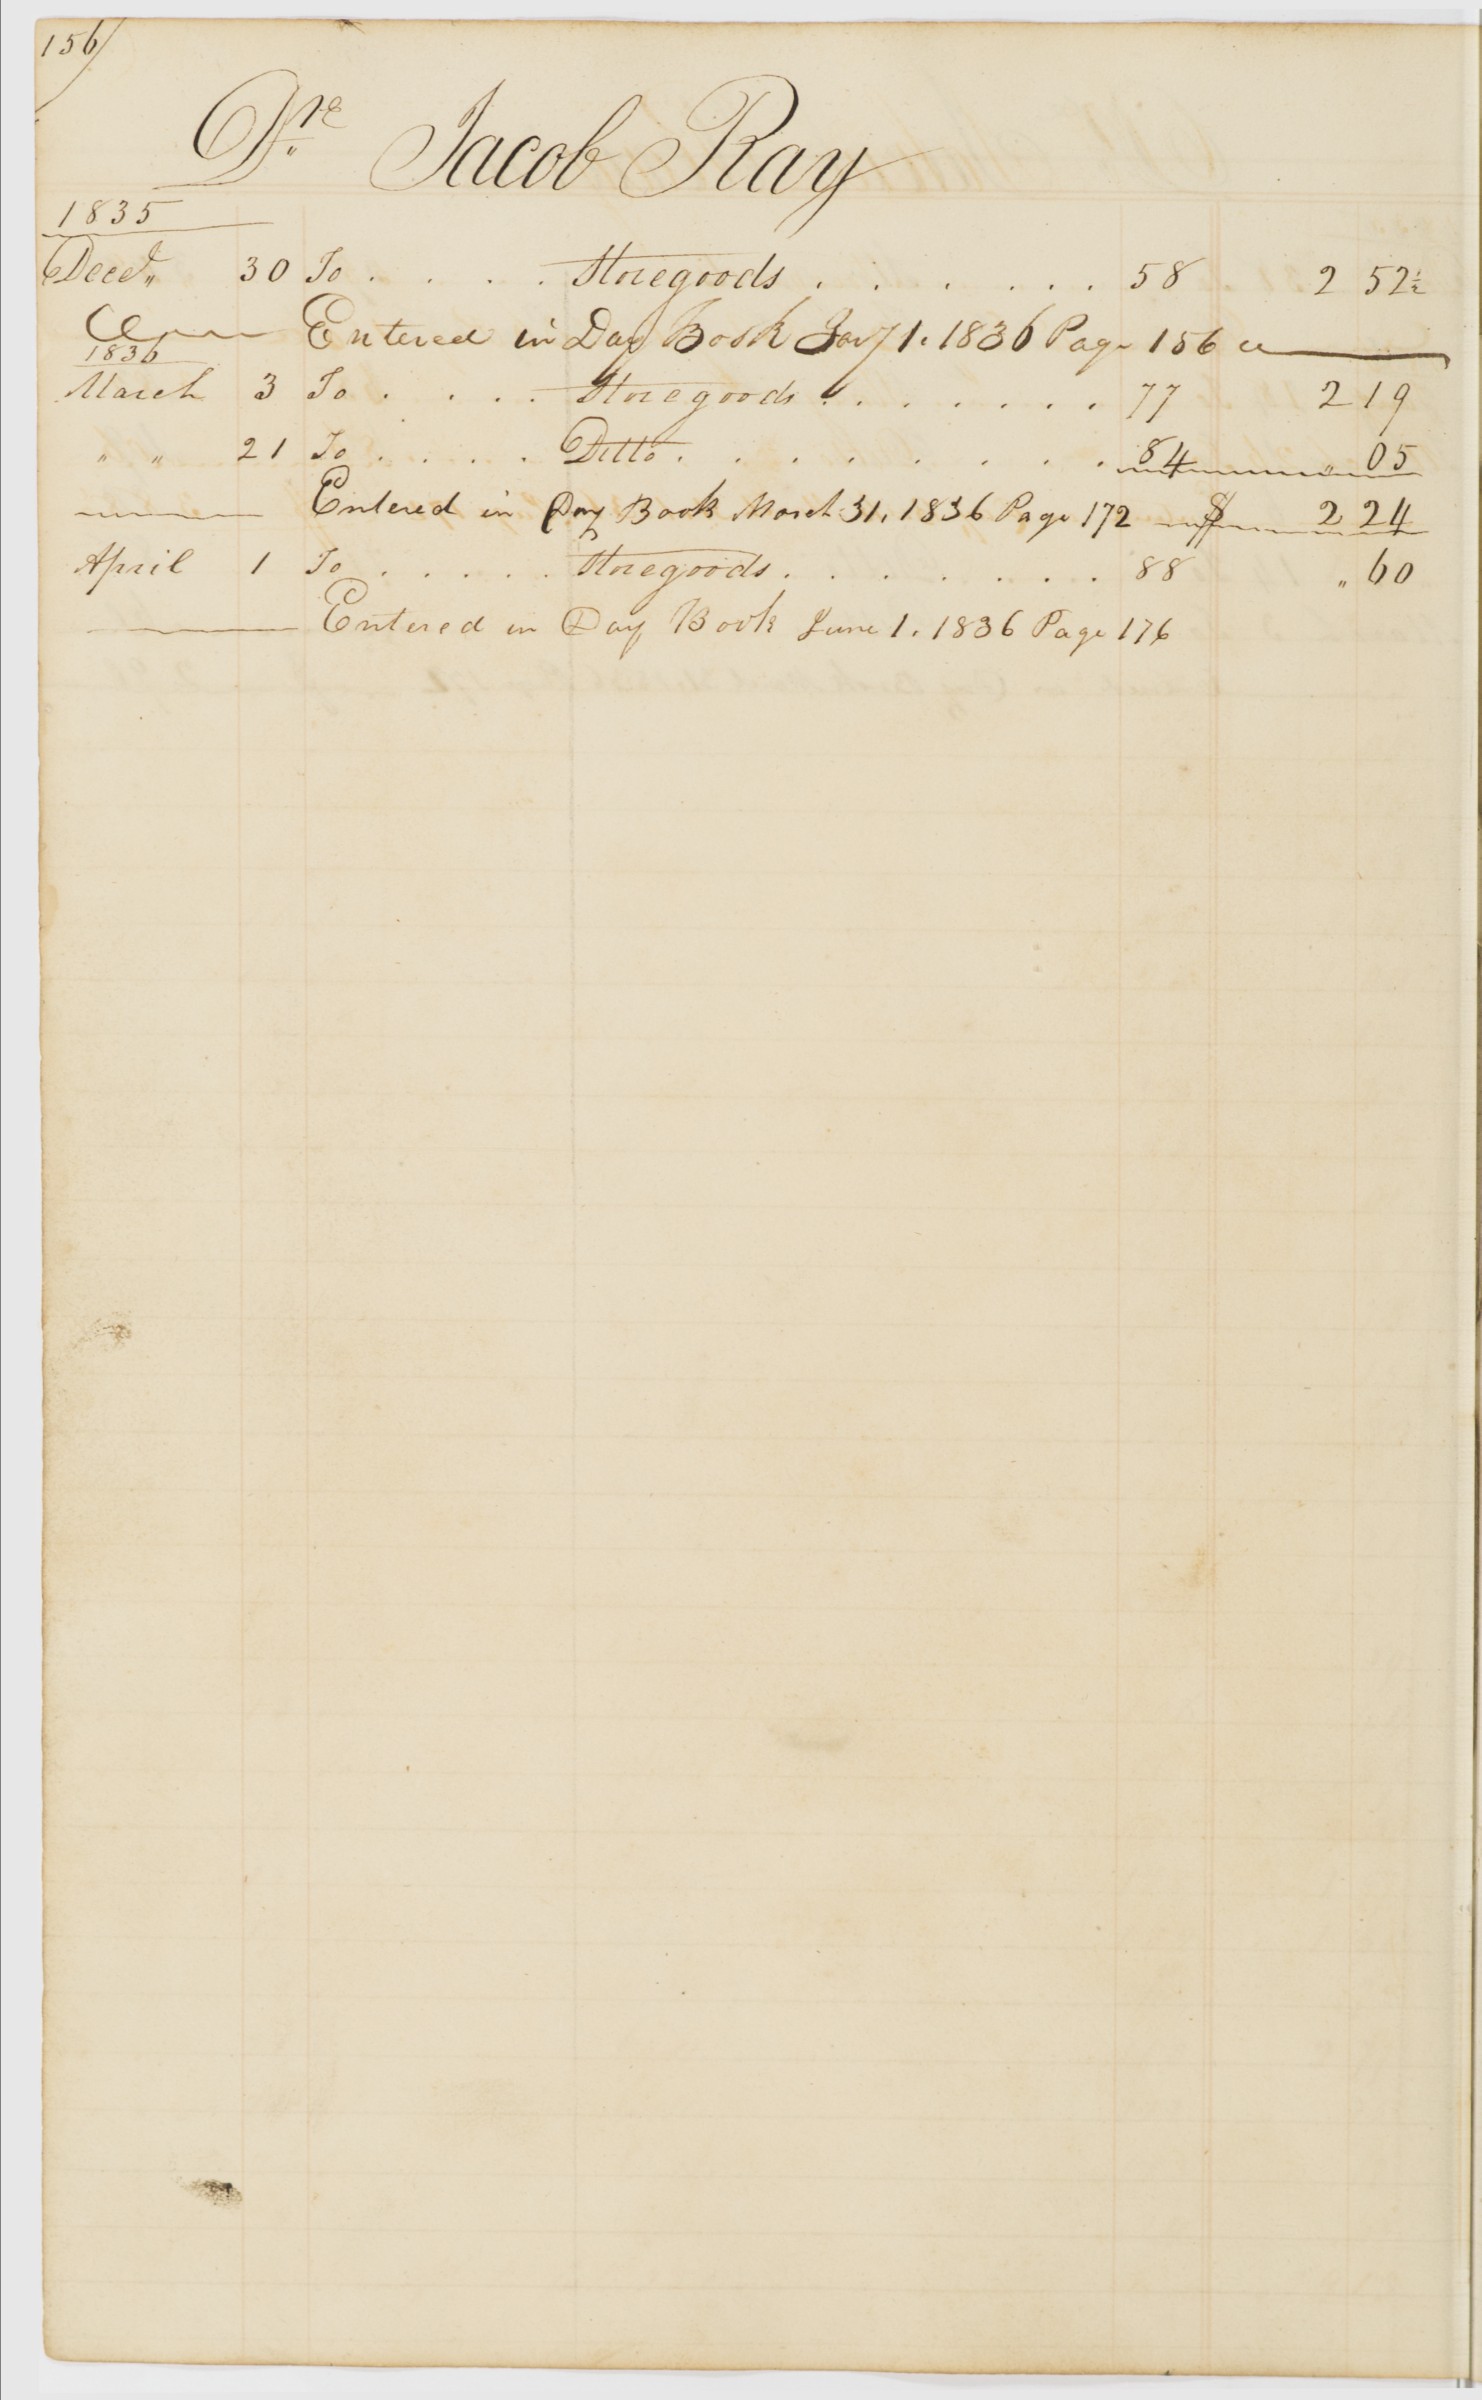 156
Dr. Jacob Ray
1835
Decer. 30 To . . . . Storegoods . . . . . . 58 2 52½
Entered in Day Book Jany 1. 1836 Page 156
1836
March 3 To . . . . Storegoods . . . . . . . 77 2 19
" " 21 To . . . . Ditto . . . . . . . . 84 " 05
Entered in Day Book March 31. 1836 Page 172 $ 2 24
April 1 To . . . . . Storegoods . . . . . . . 88 " 60
Entered in Day Book June 1. 1836 Page 176